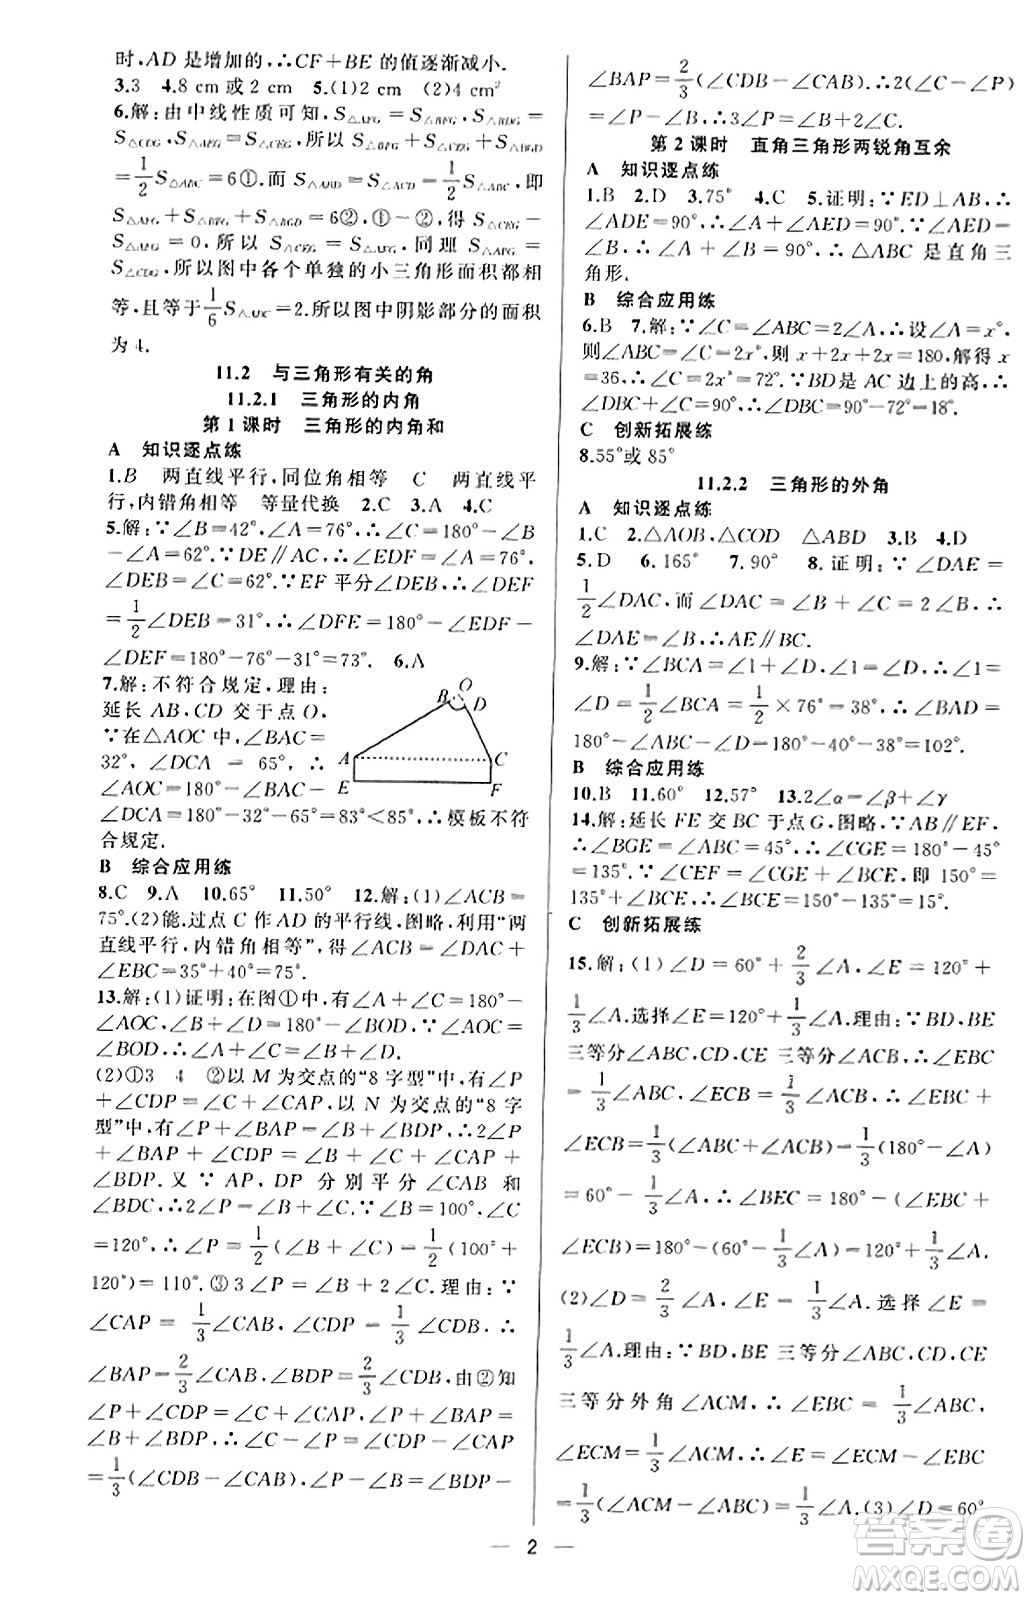 时,AD 是增加的,∴CF+BE 的值逐渐减小.
3.3 4.8 cm 或 2 cm 5.(1)2 cm (2)4 cm²
6.解:由中线性质可知,S△AFG=S△BFG,
S△BDG=S△CDG,S△AEG=S△CEG,S△AEG+S△BGD
=1/2 S△ABC=6①,而 S△ABD=1/2 S△ABC,即
S△AFG+S△BFG+S△BGD=6②,①-②,得 S△AEG
-S△AFG=0,所以 S△CEG=S△AFG,同理 S△AFG=
S△CDG,所以图中各个单独的小三角形面积都相
等,且等于1/6 S△ABC=2.所以图中阴影部分的面积
为 4.
11.2 与三角形有关的角
11.2.1 三角形的内角
第 1 课时 三角形的内角和
A 知识逐点练
1.B 两直线平行,同位角相等 C 两直线平
行,内错角相等 等量代换 2.C 3.A 4.C
5.解:∵∠B=42°,∠A=76°,∴∠C=180°-∠B
-∠A=62°.∵DE∥AC,∴∠EDF=∠A=76°,
∠DEB=∠C=62°.∵EF 平分∠DEB,∴∠DEF
=1/2∠DEB=31°,∴∠DFE=180°-∠EDF-
∠DEF=180°-76°-31°=73°. 6.A
7.解:不符合规定,理由:
延长 AB,CD 交于点 O,
∵在△AOC 中,∠BAC=
32°,∠DCA=65°,∴
∠AOC=180°-∠BAC-
∠DCA=180°-32°-65°=83°<85°,∴模板不符
合规定.
B O D
A C
E F
B 综合应用练
8.C 9.A 10.65° 11.50° 12.解:(1)∠ACB=
75°.(2)能,过点 C 作 AD 的平行线,图略,利用“两
直线平行,内错角相等”,得∠ACB=∠DAC+
∠EBC=35°+40°=75°.
13.解:(1)证明:在图①中,有∠A+∠C=180°-
∠AOC,∠B+∠D=180°-∠BOD,∵∠AOC=
∠BOD,∴∠A+∠C=∠B+∠D.
(2)①3 4 ②以 M 为交点的“8 字型”中,有∠P
+∠CDP=∠C+∠CAP,以 N 为交点的“8 字
型”中,有∠P+∠BAP=∠B+∠BDP,∴2∠P
+∠BAP+∠CDP=∠B+∠C+∠CAP+
∠BDP.又∵AP,DP 分别平分∠CAB 和
∠BDC,∴2∠P=∠B+∠C.∵∠B=100°,∠C
=120°,∴∠P=1/2(∠B+∠C)=1/2(100°+
120°)=110°.③3∠P=∠B+2∠C.理由:∵
∠CAP=1/3∠CAB,∠CDP=1/3∠CDB,∴
∠BAP=2/3∠CAB,∠BDP=2/3∠CDB,由②知
∠P+∠CDP=∠C+∠CAP,∠P+∠BAP=
∠B+∠BDP,∴∠C-∠P=∠CDP-∠CAP
=1/3(∠CDB-∠CAB),∠P-∠B=∠BDP-
∠BAP=2/3(∠CDB-∠CAB),∴2(∠C-∠P)
=∠P-∠B,∴3∠P=∠B+2∠C.
第 2 课时 直角三角形两锐角互余
A 知识逐点练
1.B 2.D 3.75° 4.C 5.证明:∵ED⊥AB,∴
∠ADE=90°,∴∠A+∠AED=90°.∵∠AED=
∠B,∴∠A+∠B=90°,∴△ABC 是直角三
角形.
B 综合应用练
6.B 7.解:∵∠C=∠ABC=2∠A,∴设∠A=x°,
则∠C=∠ABC=2x°,∴x+2x+2x=180,解得 x
=36,∴∠C=2x°=72°.∵BD 是 AC 边上的高,∴
∠DBC=90°-∠C=90°-72°=18°.
C 创新拓展练
8.55°或 85°
11.2.2 三角形的外角
A 知识逐点练
1.C 2.△AOB,△COD △ABD 3.B 4.D
5.D 6.165° 7.90° 8.证明:∵∠DAE=
1/2∠DAC,而∠DAC=∠B+∠C=2∠B,∴
∠DAE=∠B,∴AE∥BC.
9.解:∵∠BCA=∠1+∠D,∠1=∠D,∴∠1=
∠D=1/2∠BCA=1/2×76°=38°,∴∠BAD=
180°-∠BAC-∠D=180°-40°-38°=102°.
B 综合应用练
10.B 11.60° 12.57° 13.2∠α=∠β+∠γ
14.解:延长 FE 交 BC 于点 G,图略,∵AB∥EF,
∴∠BGE=∠ABC=45°,∴∠CGE=180°-45°
=135°.∵∠BEF=∠CGE+∠BCE,即 150°=
135°+∠BCE,∴∠BCE=150°-135°=15°.
C 创新拓展练
15.解:(1)∠D=60°+2/3∠A,∠E=120°+
1/3∠A.选择∠E=120°+1/3∠A.理由:∵BD,BE
三等分∠ABC,CD,CE 三等分∠ACB,∴∠EBC
=1/3∠ABC,∠ECB=1/3∠ACB,∴∠EBC+
∠ECB=1/3(∠ABC+∠ACB)=1/3(180°-∠A)
=60°-1/3∠A,∴∠BEC=180°-(∠EBC+
∠ECB)=180°-(60°-1/3∠A)=120°+1/3∠A.
(2)∠D=2/3∠A,∠E=1/3∠A.选择∠E=
1/3∠A.理由:∵BD,BE 三等分∠ABC,CD,CE
三等分外角∠ACM,∴∠EBC=1/3∠ABC,
∠ECM=1/3∠ACM,∴∠E=∠ECM-∠EBC
=1/3(∠ACM-∠ABC)=1/3∠A.(3)∠D=60°
— 2 —
答案圈
MXQE.COM